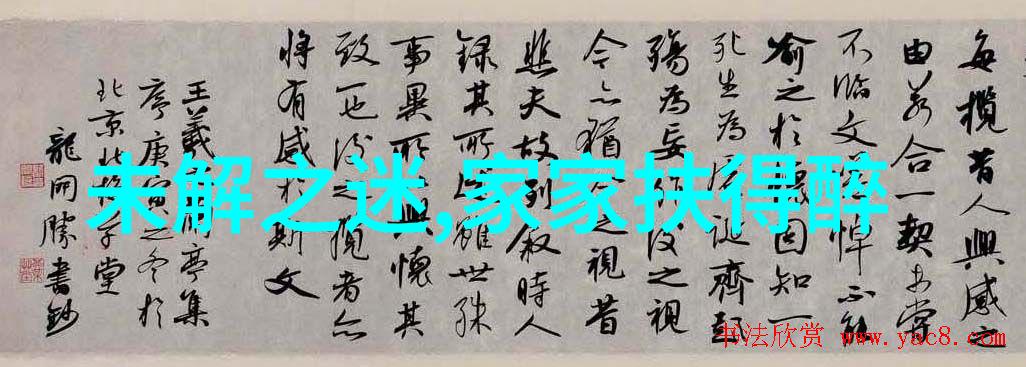 每攬昔人興感之
由若合一契未嘗
不臨文悼不能
喻之於固知一
死生為誕齊彭
殤為妄後之視
今亦猶之視昔
悲夫故列敘時人
錄其所雖世殊
事異所興懷其
致一也後之攬者亦
將有感於斯文
王羲亭集
序庚寅之冬於
北京北堂
龍開勝書鈔
未解之迷,家家扶得醉
书法欣赏 www.yac8.com